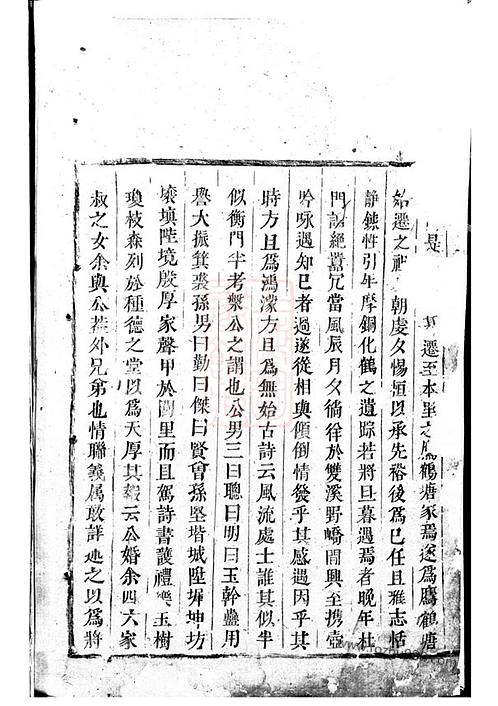 是 其遷至本里之 鶴塘家焉遂爲鴈鶴塘
始遷之祖 朝虔夕惕恒以承先裕後爲已任且雅志恬
靜鍊性引年摩銅化鶴之遺踪若將旦暮遇焉者晚年杜
門 絕囂冗當風辰月夕徜徉於雙溪野嶠間興至攜壺
吟咏遇知已者過遂從相與傾倒情發乎其感遇因乎其
時方且爲鴻濛方且爲無始古詩云風流處士誰其似半
似衡門半考槃公之謂也公男三曰聰曰明曰玉幹蠱用
譽大振箕裘孫男曰勤曰傑曰賢曾孫堅堦城陞墀坤坊
壕塡陛境殷厚家聲甲於閭里而且篤詩書護禮樂玉樹
瓊枝森列於種德之堂以爲天厚其 云公婚余四六家
叔之女余與公若外兄弟也情聯義属敢詳述之以爲將